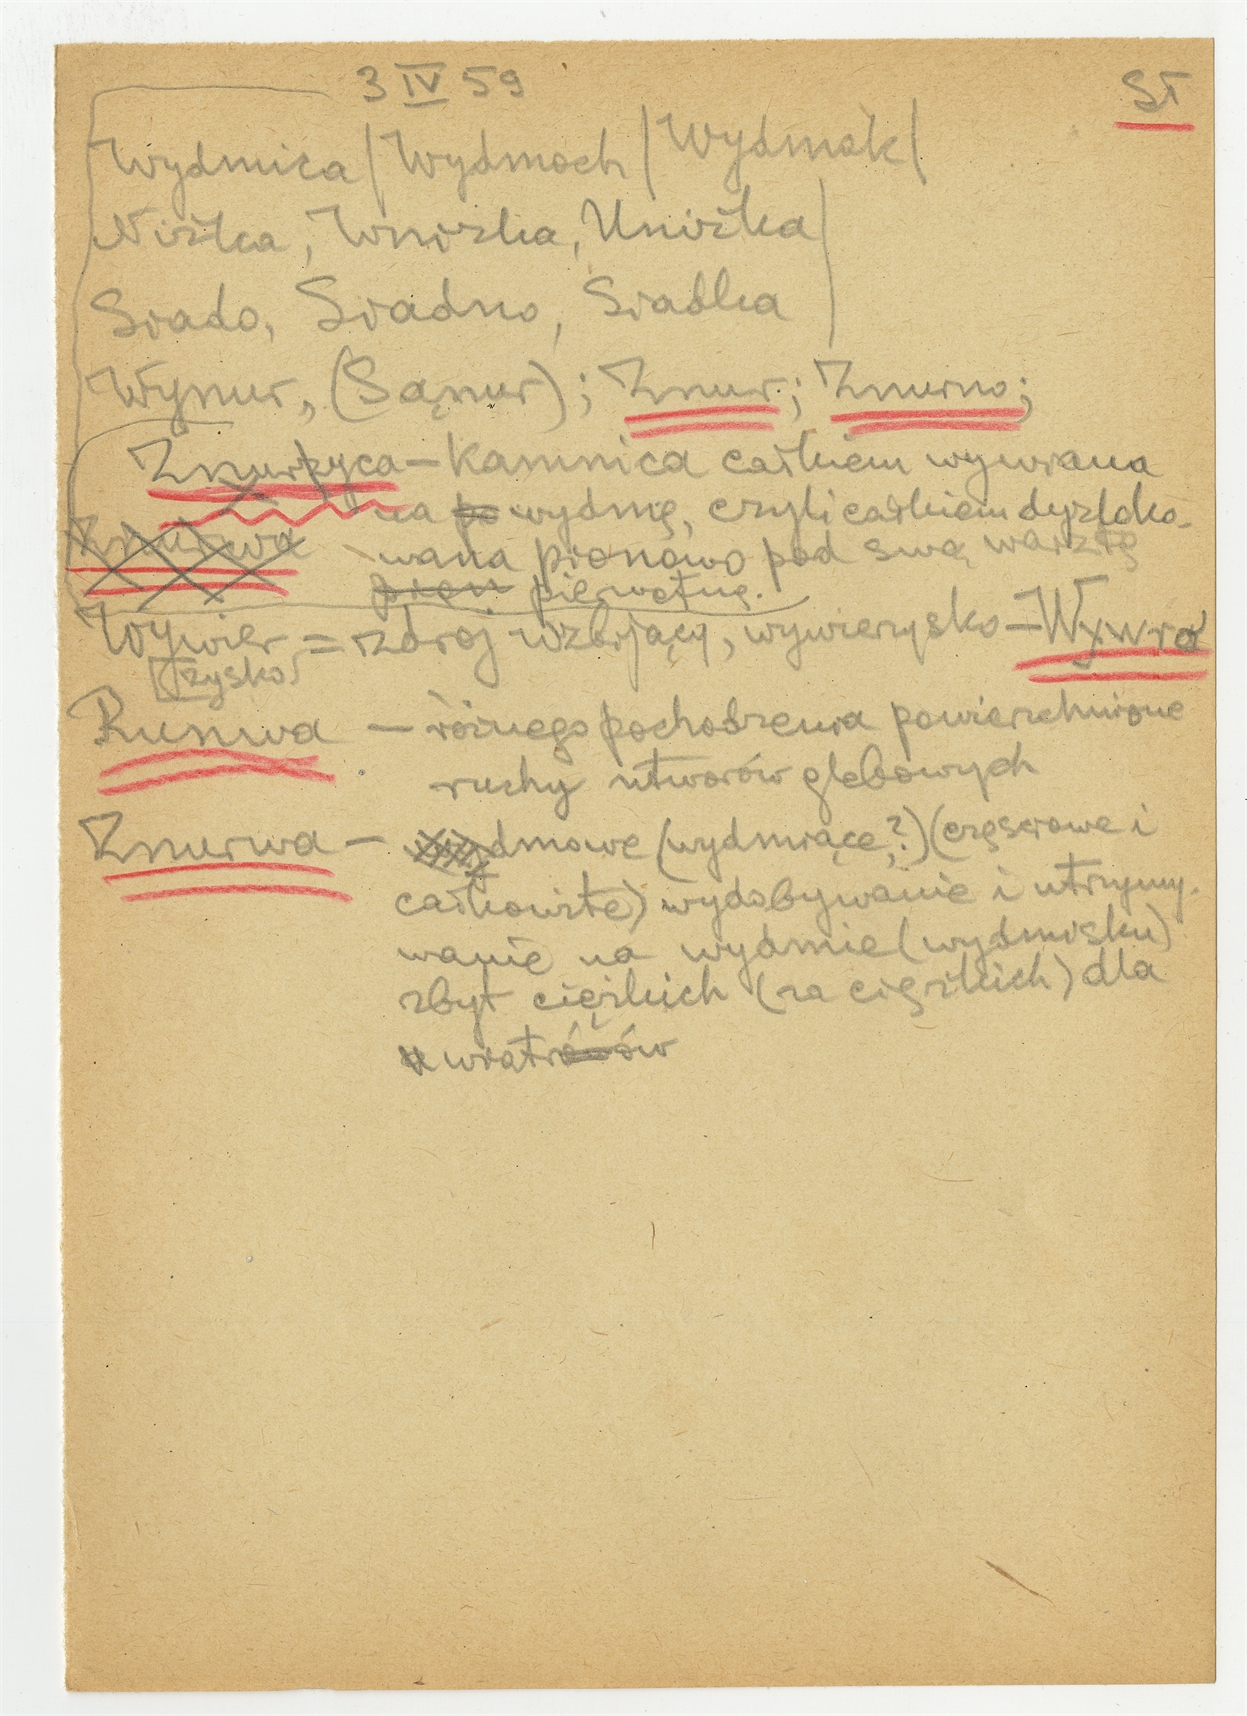 3 IV 59
St
Wydmica | Wydmoch | Wydmak |
Niżka, Wniżka, Uniżka |
Siado, Siadno, Siadka |
Wynur, (Sąnur); Znur; Znurno;
Znurzyca – Kamnica całkiem wywiana
na wydmę, czyli całkiem dyzloko-
Znurwa wana pionowo pod swą warztę
pion pierwotną.
Wywier = zdrój wzbijący, wywierzysko – Wywro
[rzysko]
Runwa – różnego pochodzenia powierzchniowe
ruchy utworów glebowych
Znurwa – dmowe (wydmiące?) (częściowe i
całkowite) wydobywanie i utrzymy-
wanie na wydmie (wydmisku)
zbyt ciężkich (za ciężkich) dla
wiatrów